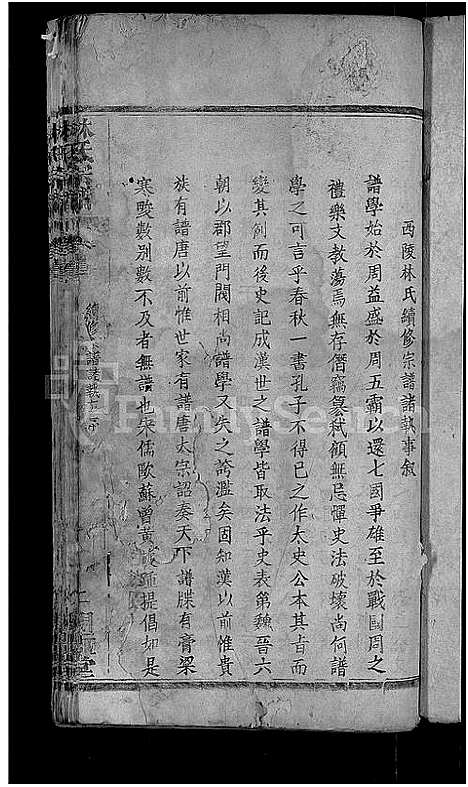 西陵林氏續修宗譜諸執事叙
譜學始於周益盛於周五霸以還七國爭雄至於戰國周之
禮樂文教蕩焉無存僭竊篡弒頗無忌憚史法破壞尚何譜
學之可言乎春秋一書孔子不得已之作太史公本其旨而
變其例而後史記成漢世之譜學皆取法乎史表第魏晉六
朝以郡望門閥相尚譜學又失之誇濫矣固知漢以前惟貴
族有譜唐以前惟世家有譜唐太宗詔奏天下譜牒有膏梁
寒畯數別數不及者無譜也宋儒歐蘇曾黃提倡如是
林氏宗譜
續修譜諸執事
堂
FamilySearch